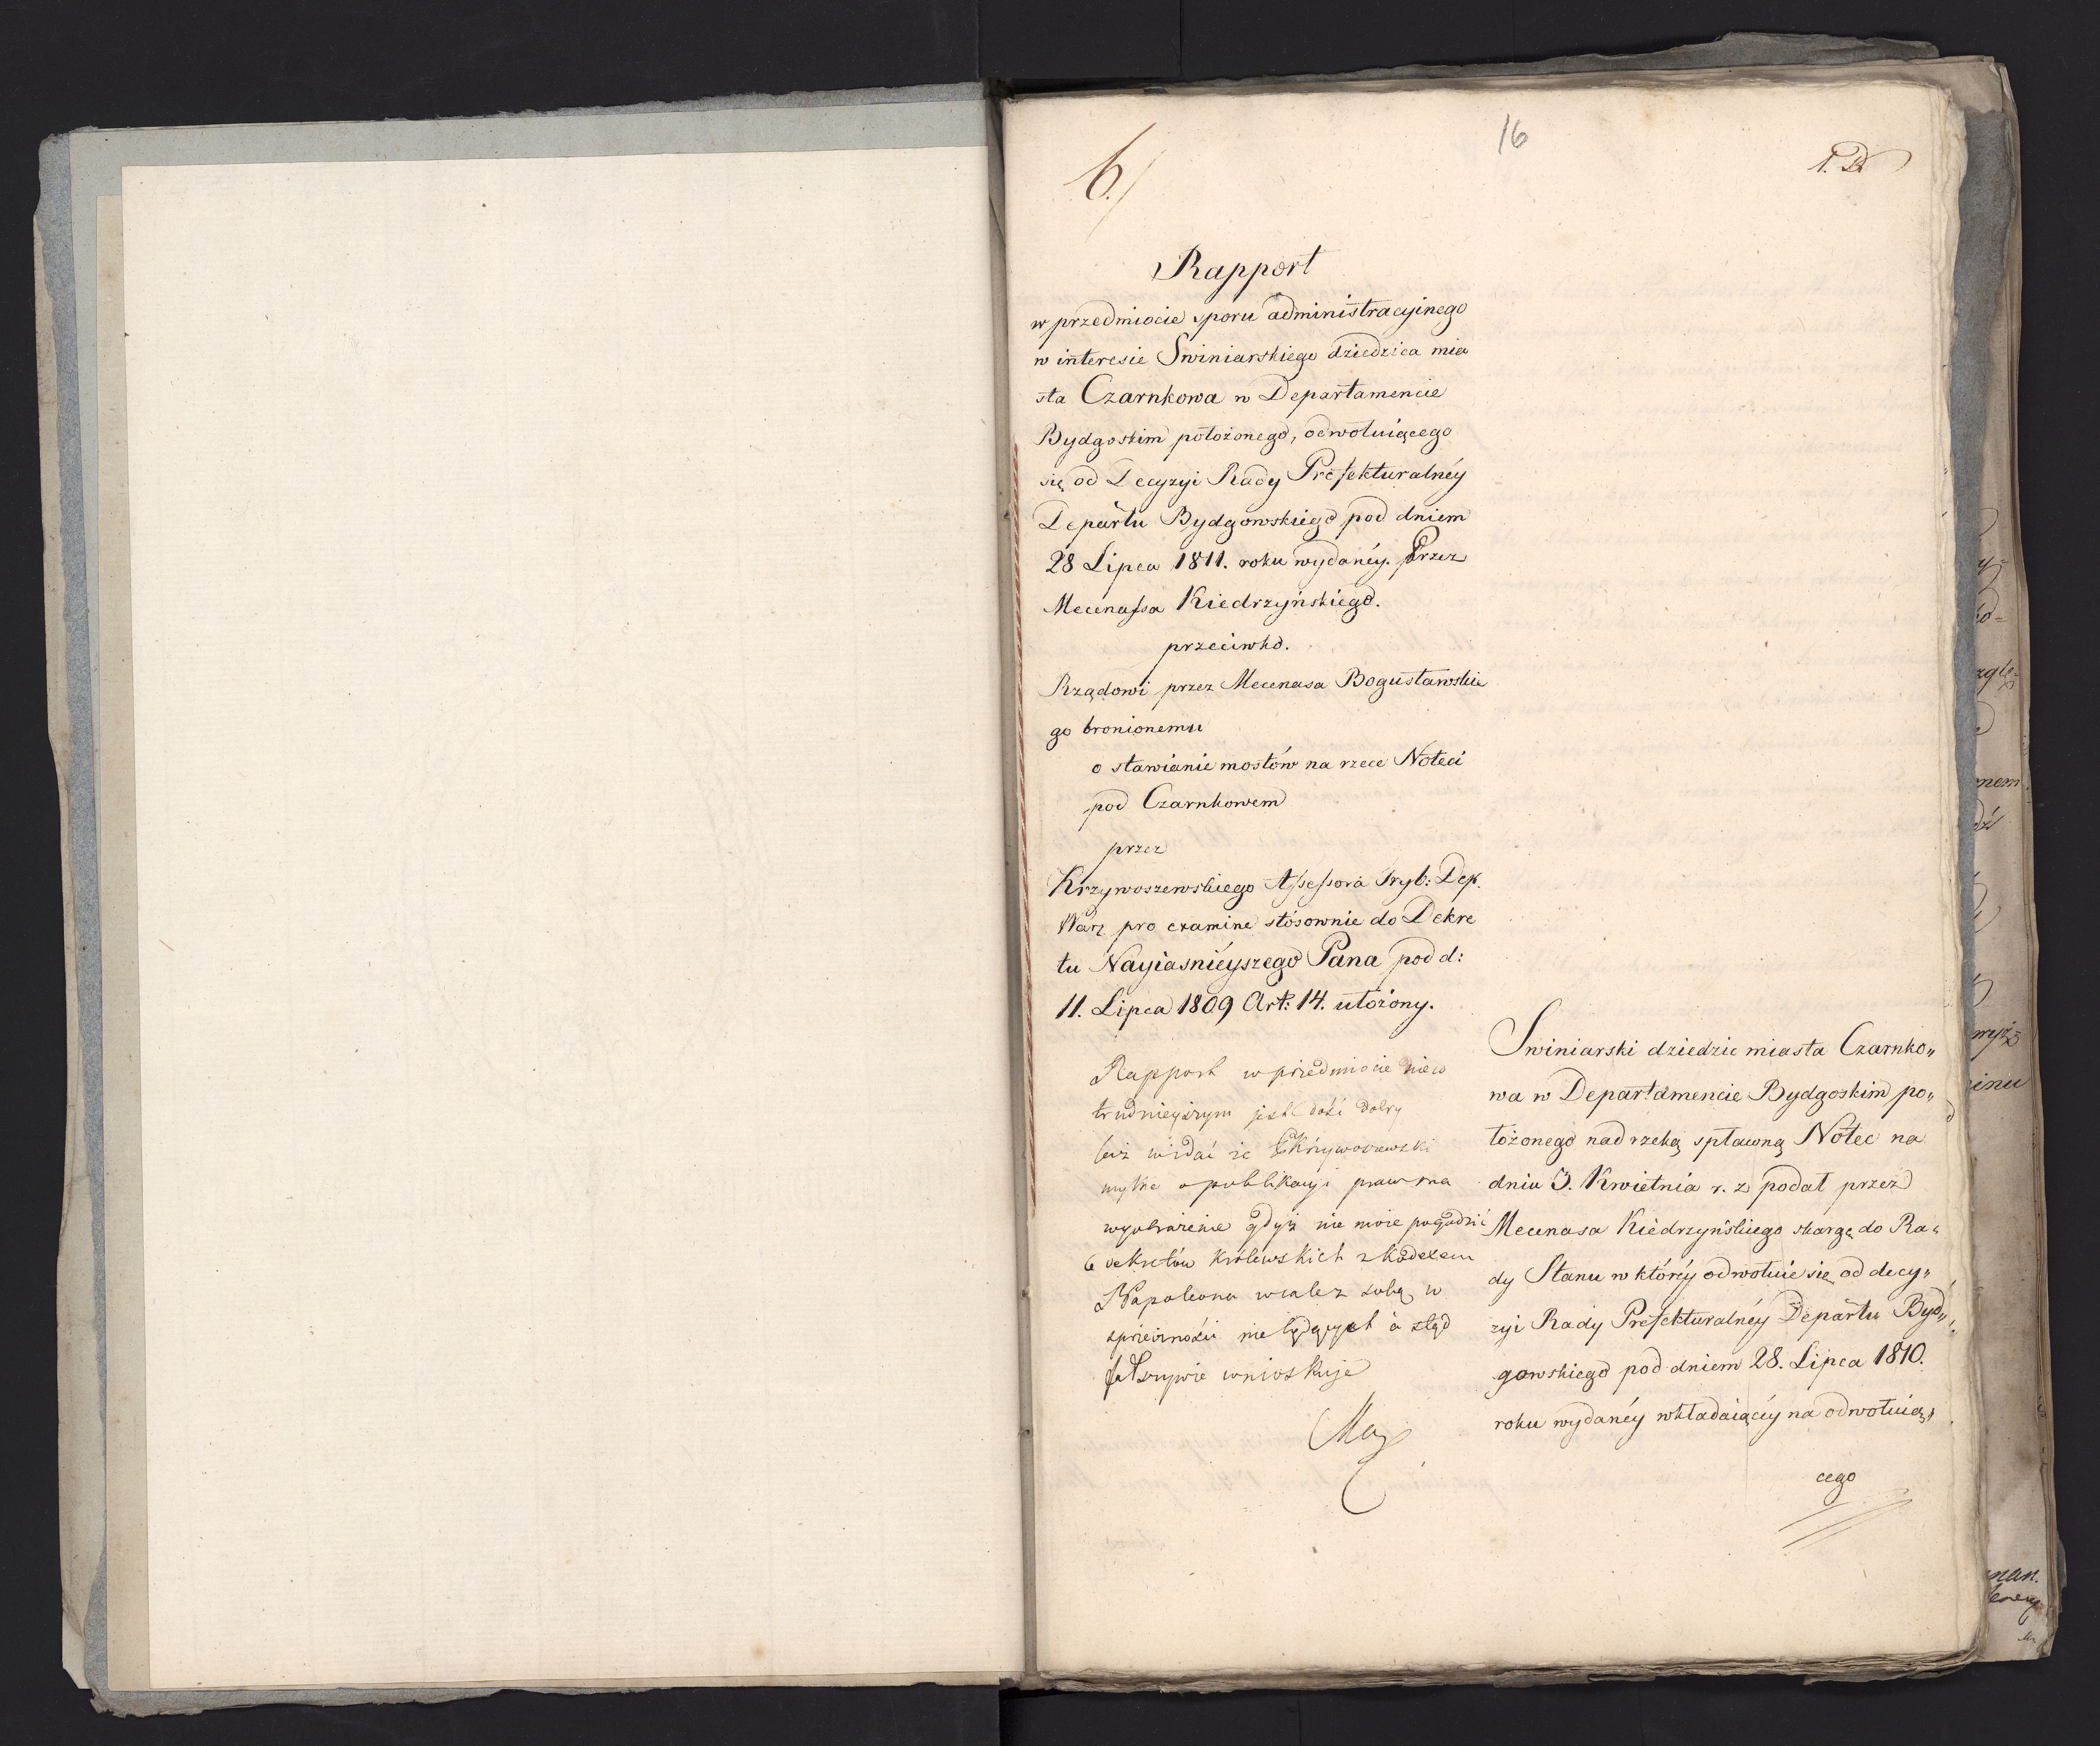 6.
16
1. D
Rapport
w przedmiocie sporu administracyinego
w interesie Swiniarskiego dziedzica mia
sta Czarnkowa w Departamencie
Bydgoskim położonego, odwołuiącego
się od Decyzyi Rady Prefekturalnéy
Departu Bydgowskiego pod dniem
28 Lipca 1811. roku wydanéy. Przez
Mecenassa Kiedrzyńskiego.
przeciwko.
Rządowi przez Mecenasa Bogusławskie
go bronionemu
o stawianie mostów na rzece Noteci
pod Czarnkowem
przez
Krzywoszewskiego Assessora Tryb: Dep.
Warz. pro examine stósownie do Dekre
tu Nayiasnieyszego Pana pod d:
11. Lipca 1809 Art: 14. ułożony.
Rapport w przedmiocie nie
trudnieyszym jest dość dobry
widać że Krzywoszewski
mylne o publikacyi praw ma
wyobrażenie gdyż nie może pogodzić
6 dekretów Królewskich z Kodexem
Napoleona wcale z sobą w
sprzeczności nie będących a ztąd
fałszywie wnioskuje
Swiniarski dziedzic miasta Czarnko„
wa w Departamencie Bydgoskim po„
łożonego nad rzeką spławną Notec na
dniu 3. Kwietnia r. z. podał przez
Mecenasa Kiedrzyńskiego skargę do Ra„
dy Stanu w któréy odwołuie się od decy„
zyi Rady Prefekturalnéy Departu Byd„
gowskiego pod dniem 28. Lipca 1810.
roku wydanéy wkładaiącéy na odwołuią„
cego